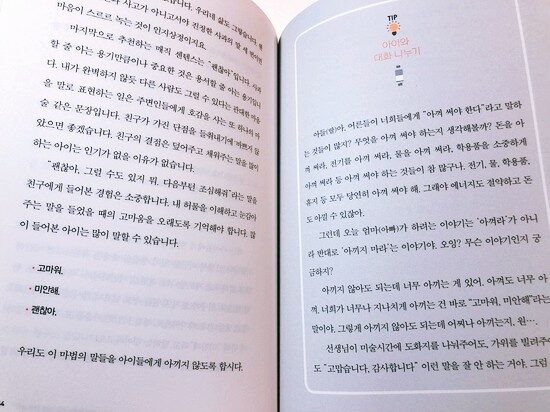 사고가 아니고서야 진정한 사과와
마음이 스르르 녹는 것이 인지상정이지요.
마지막으로 추천하는 매직 센텐스는 "괜찮아"입니다. 사과
할 줄 아는 용기만큼이나 중요한 것은 용서할 줄 아는 용기입니
다. 내가 완벽하지 않듯 다른 사람도 그럴 수 있다는 관대한 마음
을 말로 표현하는 일은 주변인들에게 호감을 사는 또 하나의 마
술 같은 문장입니다. 친구가 가진 단점을 들춰내기에 바쁘지 않
았으면 좋겠습니다. 친구의 결점은 덮어주고 채워주는 말을 많이
하는 아이는 인기가 없을 이유가 없습니다.
"괜찮아, 그럴 수도 있지 뭐. 다음부턴 조심해줘"라는 말을
친구에게 들어본 경험은 소중합니다. 내 허물을 이해하고 눈감아
주는 말을 들었을 때의 고마움을 오래도록 기억해야 합니다. 많
이 들어본 아이는 많이 말할 수 있습니다.
• 고마워.
• 미안해.
• 괜찮아.
우리도 이 마법의 말들을 아이들에게 아끼지 않도록 합시다.
TIP
아이와
대화 나누기
아들(딸)아, 어른들이 너희들에게 "아껴 써야 한다"라고 말하
는 것들이 많지? 무엇을 아껴 써야 하는지 생각해볼까? 돈을 아
껴 써라, 전기를 아껴 써라, 물을 아껴 써라, 학용품을 소중하게
아껴 써라 등 아껴 써야 하는 것들이 참 많구나. 전기, 물, 학용품,
휴지 등 모두 당연히 아껴 써야 해. 그래야 에너지도 절약하고 돈
도 아낄 수 있잖아.
그런데 오늘 엄마(아빠)가 하려는 이야기는 '아껴라'가 아니
라 반대로 '아끼지 마라'는 이야기야. 오잉? 무슨 이야기인지 궁
금하지?
아끼지 않아도 되는데 너무 아끼는 게 있어. 아껴도 너무 아
껴. 너희가 너무나 지나치게 아끼는 건 바로 "고마워, 미안해"라는
말이야. 그렇게 아끼지 않아도 되는데 어찌나 아끼는지, 원….
선생님이 미술시간에 도화지를 나눠주어도, 가위를 빌려주
도 "고맙습니다, 감사합니다" 이런 말을 잘 안 하는 거야. 그럼